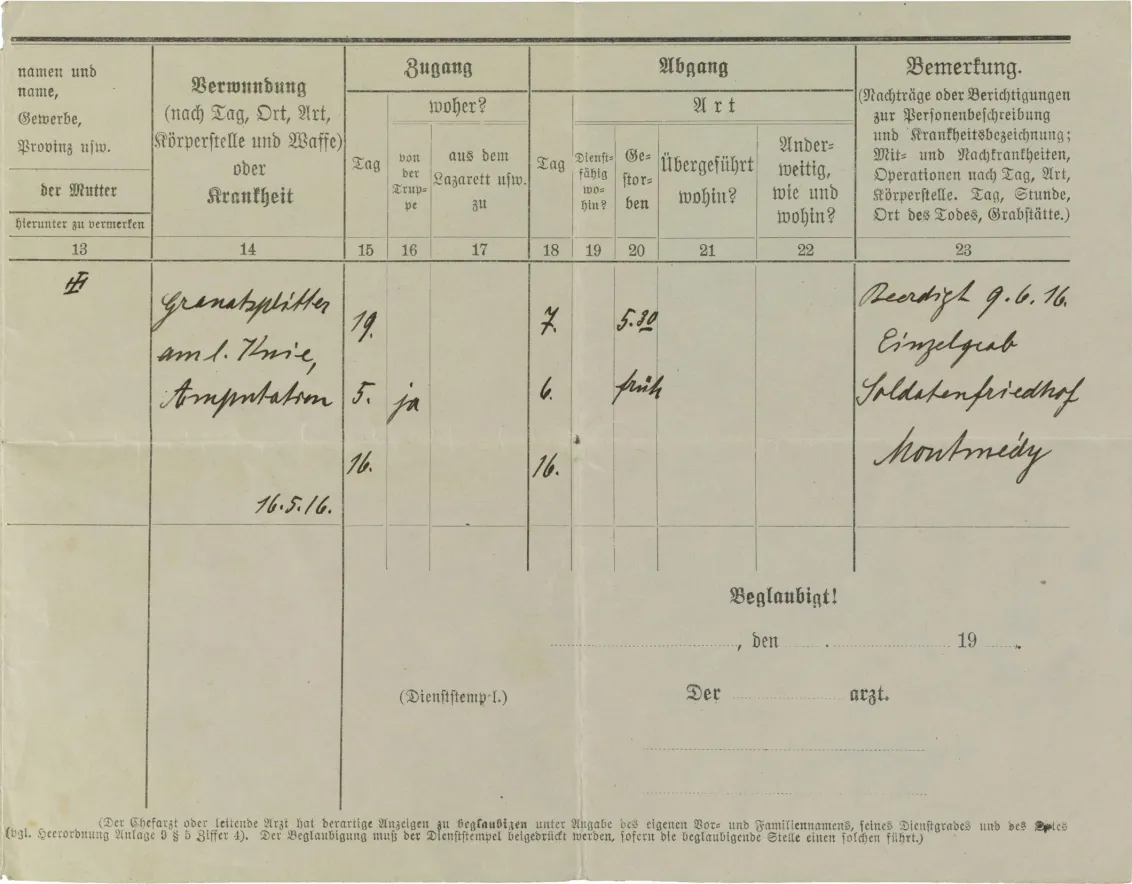 namen und
name,
Gewerbe,
Provinz usw.
der Mutter
hierunter zu vermerken
Verwundung
(nach Tag, Ort, Art,
Körperstelle und Waffe)
oder
Krankheit
Zugang
woher?
Tag
von
der
Trup-
pe
aus dem
Lazarett usw.
zu
Abgang
Art
Tag
Dienst-
fähig
wo-
hin?
Ge-
stor-
ben
Übergeführt
wohin?
Ander-
weitig,
wie und
wohin?
Bemerkung.
(Nachträge oder Berichtigungen
zur Personenbeschreibung
und Krankheitsbezeichnung;
Mit- und Nachkrankheiten,
Operationen nach Tag, Art,
Körperstelle. Tag, Stunde,
Ort des Todes, Grabstätte.)
13 14 15 16 17 18 19 20 21 22 23
Granatsplitter
am l. Knie,
Amputation
16.5.16.
19.
5.
16.
ja
7.
6.
16.
5.30
früh
Beerdigt 9.6.16.
Einzelgrab
Soldatenfriedhof
Montmédy
Beglaubigt!
, den . 19 .
(Dienststemp l.)
Der arzt.
(Der Chefarzt oder leitende Arzt hat derartige Anzeigen zu beglaubigen unter Angabe des eigenen Vor- und Familiennamens, seines Dienstgrades und des
(vgl. Heerordnung Anlage 9 § 5 Ziffer 4). Der Beglaubigung muß der Dienststempel beigedrückt werden, sofern die beglaubigende Stelle einen solchen führt.)